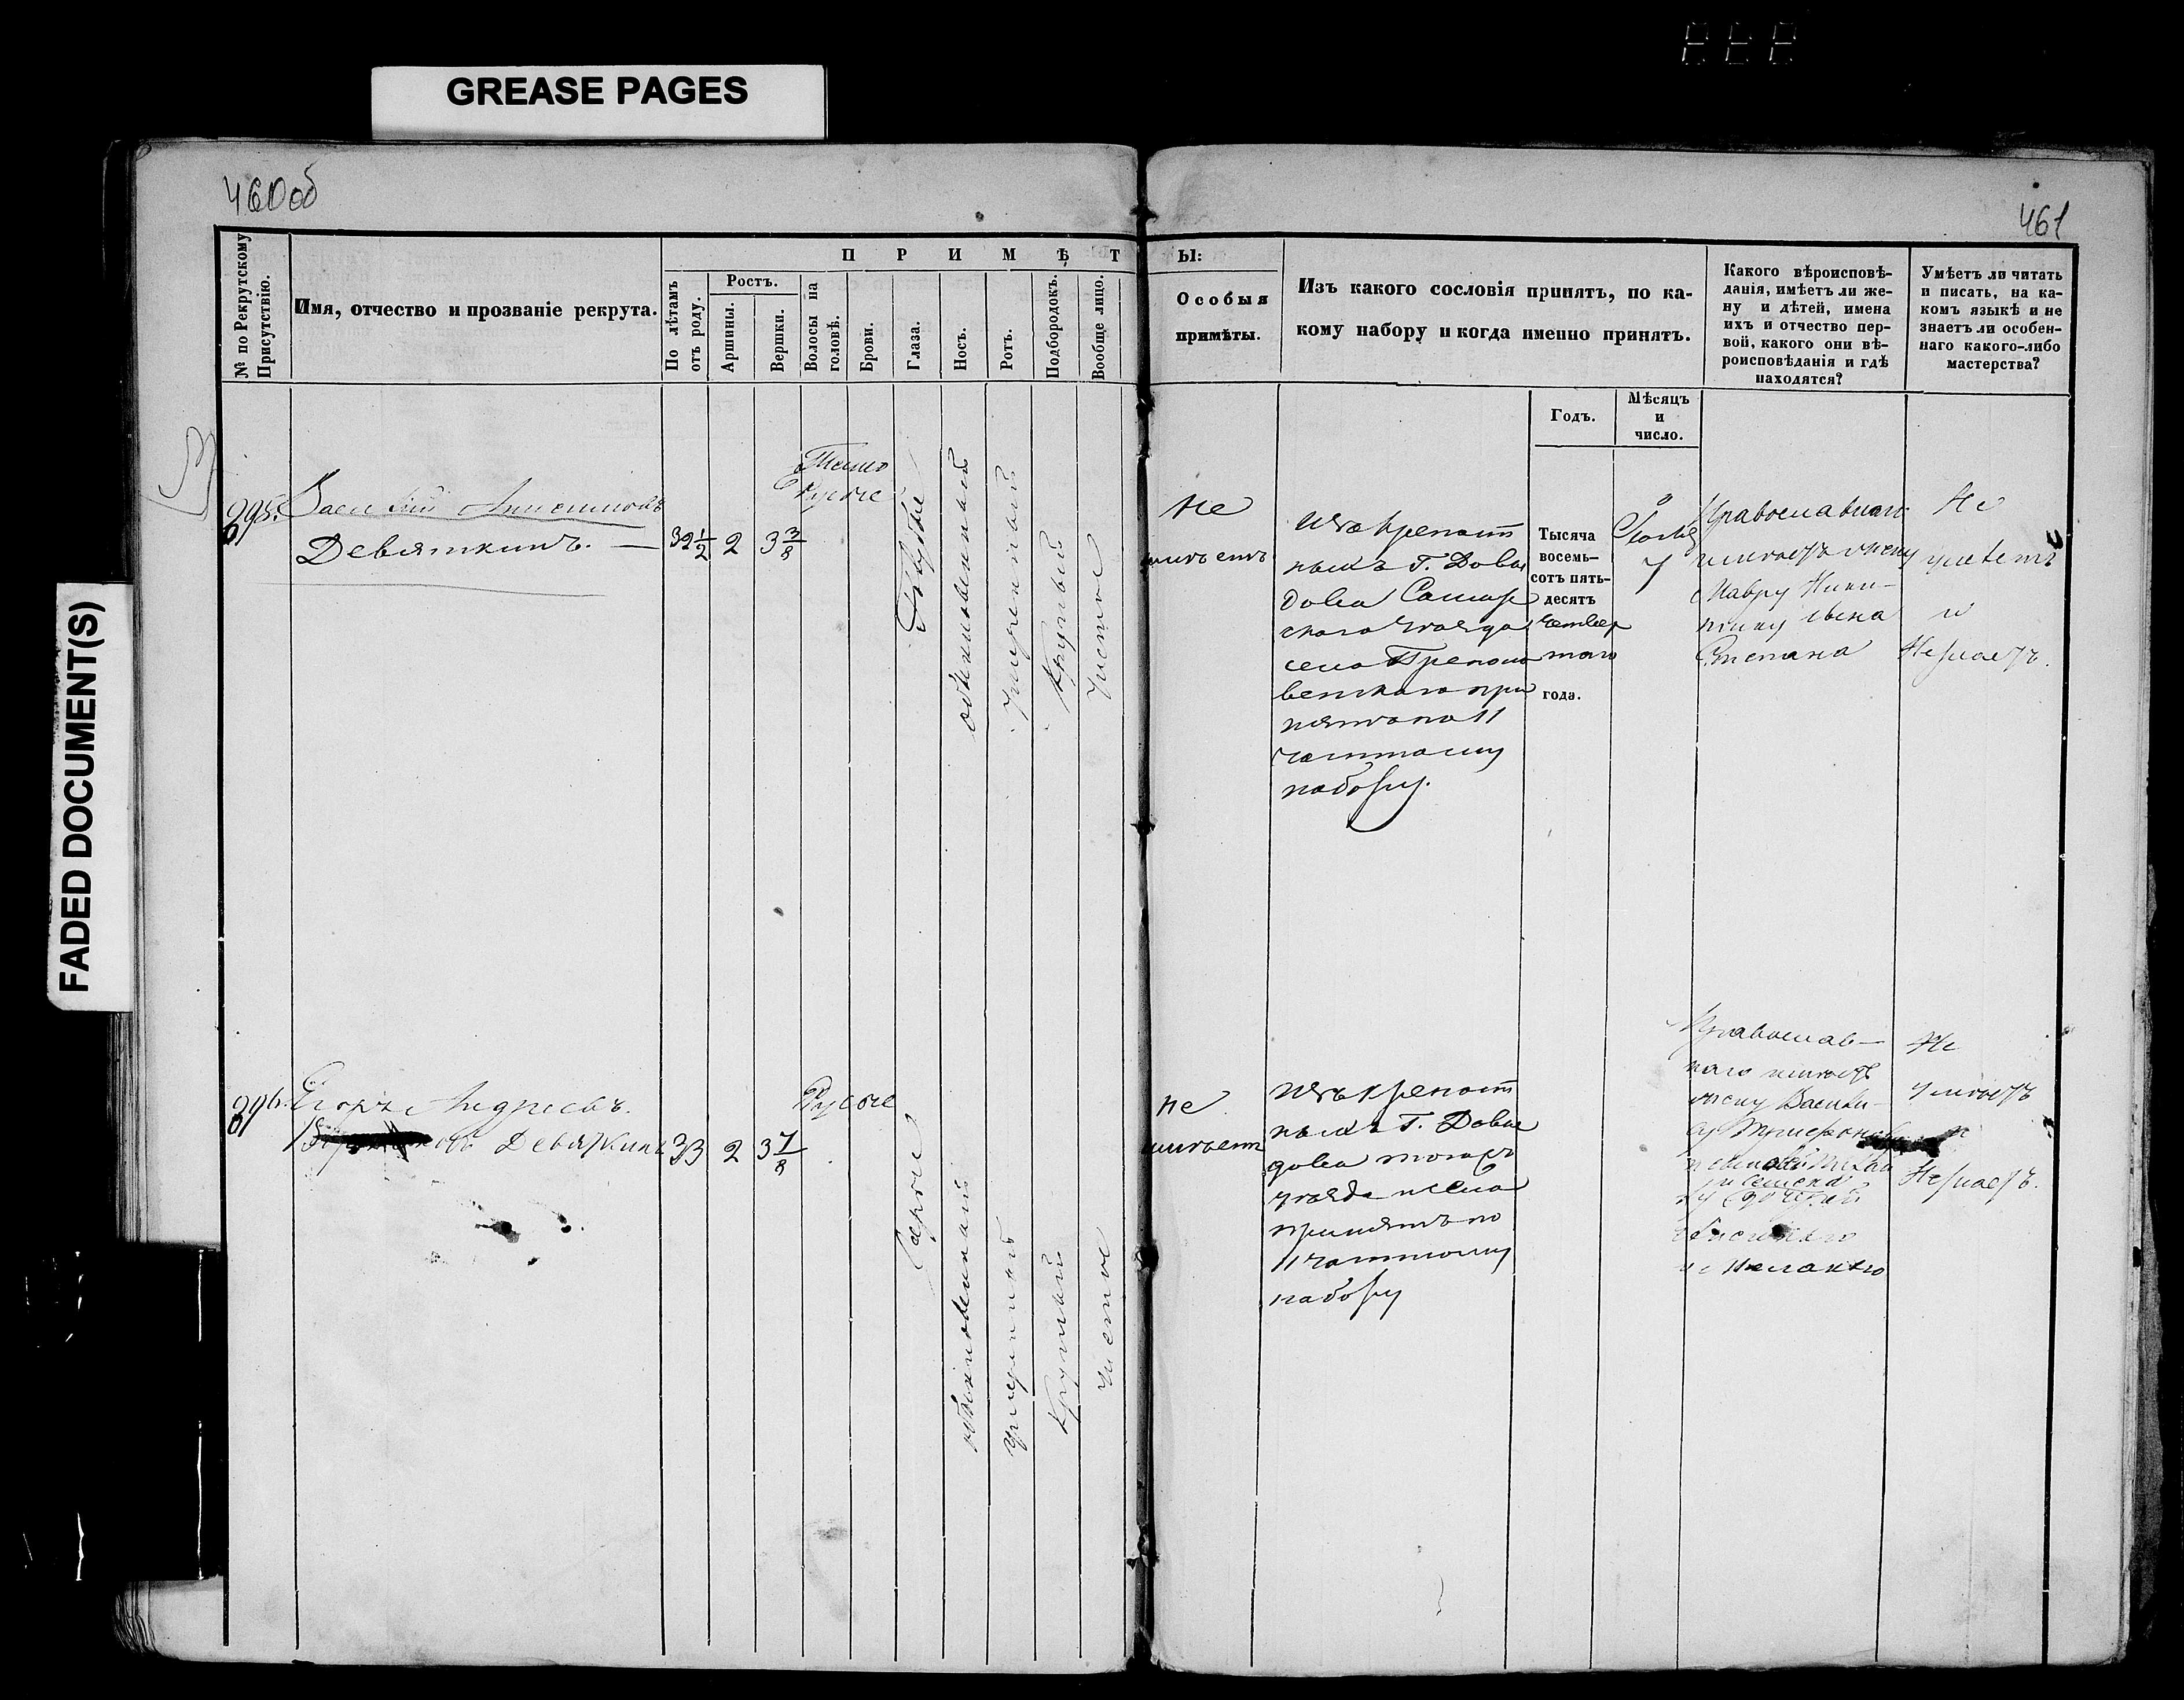 GREASE PAGES
FADED DOCUMENT(S)
460 об
461
№ по Рекрутскому Присутствію.
Имя, отчество и прозваніе рекрута.
ПРИМѢТЫ:
По лѣтамъ отъ роду.
Ростъ.
Аршины.
Вершки.
Волосы на головѣ.
Брови.
Глаза.
Носъ.
Ротъ.
Подбородокъ.
Вообще лицо.
Особыя
примѣты.
Изъ какого сословія принятъ, по ка-
кому набору и когда именно принятъ.
Годъ.
Мѣсяцъ
и
число.
Какого вѣроисповѣ-
данія, имѣетъ ли же-
ну и дѣтей, имена
ихъ и отчество пер-
вой, какого они вѣ-
роисповѣданія и гдѣ
находятся?
Умѣетъ ли читать
и писать, на ка-
комъ языкѣ и не
знаетъ ли особен-
наго какого-либо
мастерства?
295.
Василій Анисимовъ
Девяткинъ.
32 1/2
2
3 3/8
Темно
Русые
Голубые
обыкновенный
Умеренный
Круглый
Чистое
не
имѣетъ
Изъ крепост
ныхъ Г. Давы
дова Самар
скаго уѣзда
села Преполо
венскаго при
нятъ по 11
частному
набору.
Тысяча
восемь-
сотъ пять-
десятъ
четвер
таго
года.
7
Православнаго
имѣетъ жену
Мавру Ники-
тину сына
Степана
Не
умѣетъ
и
Незнаетъ.
296.
Егоръ Андреевъ.
Девяткинъ
33
2
3 7/8
Русые
Серые
обыкновенный
умеренный
Круглый
чистое
не
имѣетъ
Изъ крепост
ныхъ Г. Давы
дова тогожъ
уѣзда и села
принятъ по
11 частному
набору
Православ-
наго имѣетъ
жену Васили-
су
Не
умѣетъ
и
Незнаетъ.